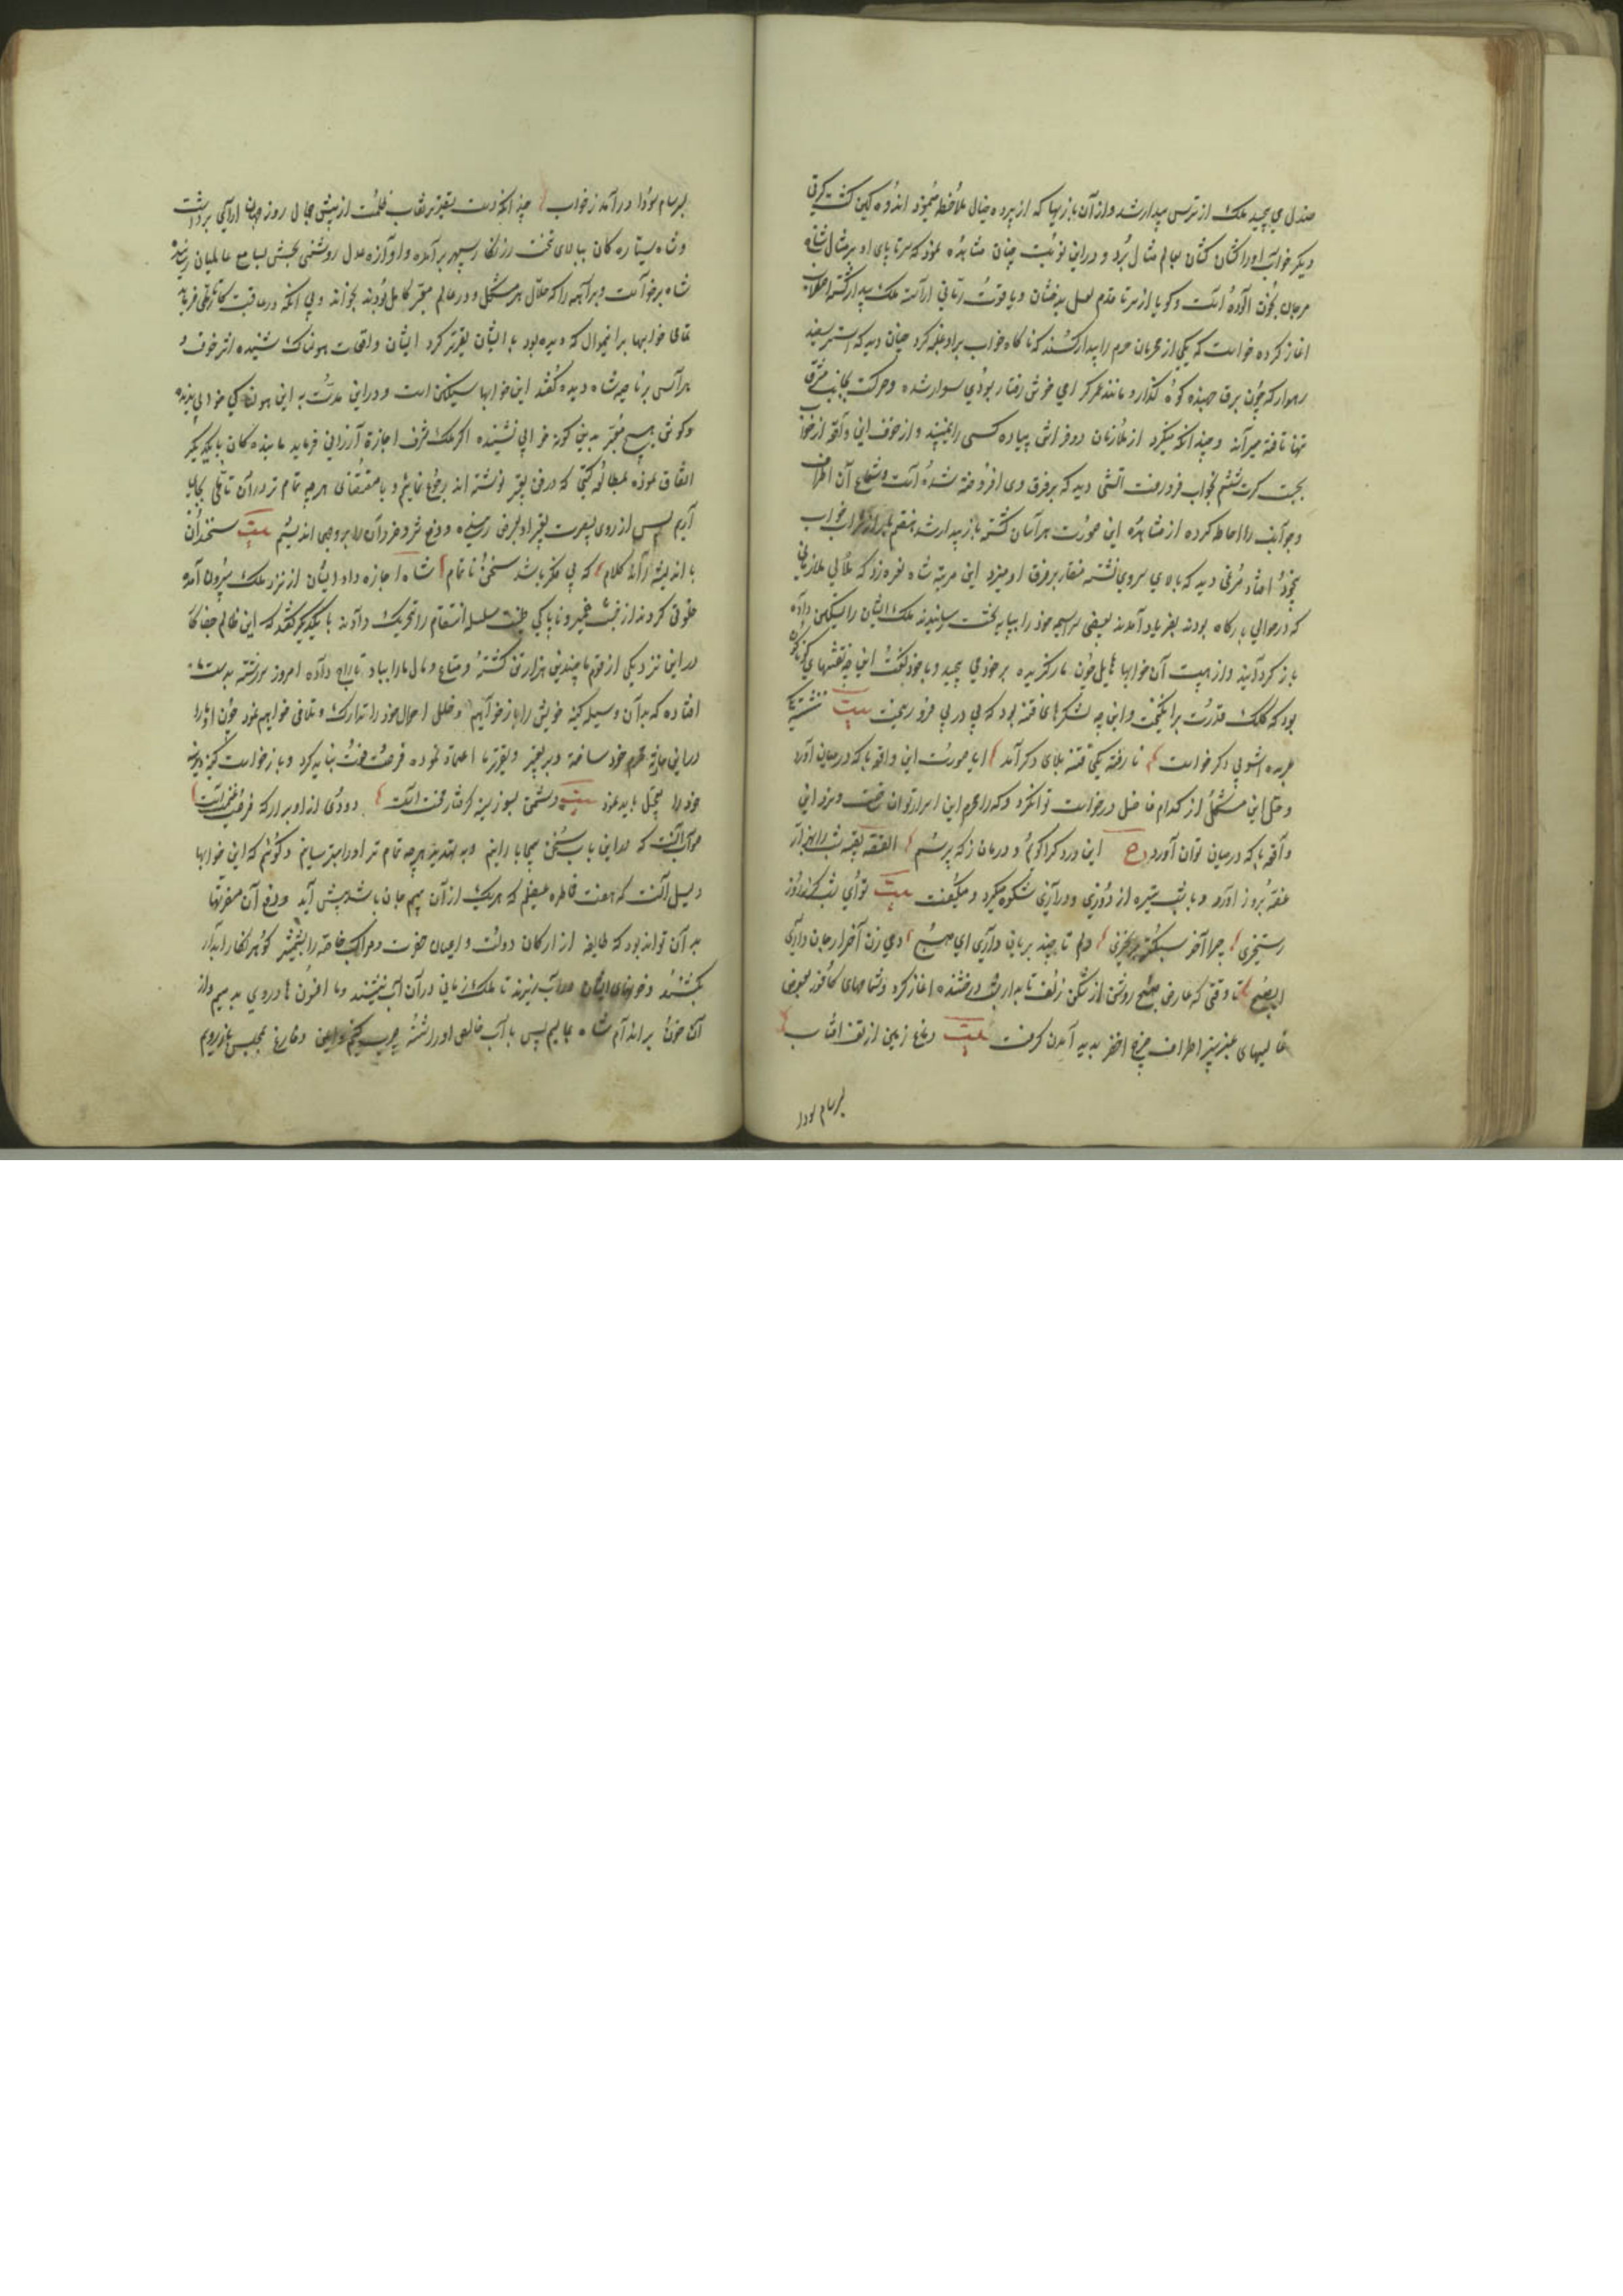 صندل می پیچید ملک از ترس بیدار شد و از آن بازیها که از پرده خیال ملاحظه مینمود اندوهگین گشت کرتی
دیگر خواب او را کشان کشان بعالم مثال برد و درین نوبت چنان مشاهده نمود که سر تا پای او بر مثال شاخ
مرجان بخون آلوده است و گویا از سر تا قدم بلعل بدخشان و یاقوت رمانی آراسته ملک بیدار گشته اضطراب
اغاز کرده خواست که یکی از محرمان حرم را بیدار کند که ناگاه خواب بر او غلبه کرد چنان دید که استر سفید
رهوار که چون برق جهنده کوه گذار و مانند عمر گرامی خوش رفتار بودی سوار شده و حرکت بجانب مشرق
تنها تافته میراند و چندانکه مینگرد از ملازمان دو فراش پیاده کسی را نمیبیند و از خوف این واقعه از خواب
بجست کرت ششم بخواب فرو رفت آتشی دید که بر فرق وی افروخته شده است و شعاع آن اطراف
و جوانب را احاطه کرده از مشاهده این صورت هراسان گشته باز بیدار شد هفتم بار از شراب خواب
بیخود افتاد مرغی دید که بالای سر وی نشسته منقار بر فرق او میزد این مرتبه شاه نعره زد که ملازمانی
که در حوالی بارگاه بودند بفریاد آمدند بعضی سراسیمه خود را بپایه تخت رسانیدند ملک ایشان را تسکین داده
باز گردانید و از هیبت آن خوابها هایل چون مار گزیده بر خود می پیچید و با خود میگفت این چه نقشهای گوناگون
بود که کلک قدرت برانگیخت و این چه لشکرهای فتنه بود که پی در پی فرو ریخت بیت ننشسته یک
عربده آشوبی دگر خواست نا رفته یکی فتنه بلای دگر آمد ایا صورت این واقعه با که در میان آورد
و حل این مشکل از کدام فاضل درخواست توان کرد و که را محرم این اسرار توان ساخت و نرد این
واقعه با که در میان توان آورد ع این درد کرا گویم و درمان ز که پرسم القصه بقیه شب را بهزار
غصه بروز آورد و با شب تیره از دوری و درازی شکوه میکرد و میگفت بیت تو ای شب گر نه روز
رستخیزی چرا آخر سبکتر برنخیزی دلم تا چند بریان داری ای صبح دمی زن آخر ار جان داری
ای صبح تا وقتی که عارض صبح روشن از شکن زلف تابدار شب درخشنده اغاز کرد و شمامهای کافور بعوض
غالیهای عنبر بیز اطراف چرخ اخضر پدید آمدن گرفت بیت دماغ زمین از تف آفتاب
بسرسام سودا
بسرسام سودا در آمد ز خواب چندانکه دست تقدیر نقاب ظلمت از پیش جمال روز جهان آرای برداشت
و شاه ستاره گان ببالای تخت زرنگار سپهر بر آمده و آوازه عدل روشنی بخشی بسامع عالمیان رساند
شاه برخواست و براهمه را که حلال هر مشکل و در عالم معبر کامل بودند بخواند و بی آنکه در عاقبت کار تاملی فرماید
تمامی خوابها بر این منوال که دیده بود با ایشان تقریر کرد ایشان واقعات هولناک شنیده اثر خوف و
هراس بر ناصیه شاه دیده گفتند این خوابها سهمگین است و در این مدت به این هولناکی خوابی ندیده
و گوش هیچ معبر بدین گونه خوابی نشنیده اگر ملک شرف اجازة ارزانی فرماید ما بنده گان با یکدیگر
اتفاق نموده بمطالعه کتبی که در فن تعبیر نوشته اند رجوع نماییم و بامتقصای هر چه تمام تر در آن تاملی بجا
آریم پس از روی بصیرت تعبیر او بعرض رسانیده و دفع شر و ضرر آن را بر وجهی اندیشیم بیت سخندان
با اندیشه راند کلام که بی فکر باشد سخن نا تمام شاه اجازه داد ایشان از نزد ملک بیرون آمده
خلوتی کردند از خبث ضمیر و ناپاکی طینت سلسله انتقام را تحریک داده با یکدیگر گفتند که این ظالم جفاکار
در این نزدیکی از قوم ما چندین هزار تن کشته و متاع و مال ما را بباد تاراج داده امروز سر رشته بدست ما
افتاده که بدان وسیله کینه خویش را باز خواهیم و خلل احوال خود را تدارک و تلافی خواهیم نمود چون او ما را
در این حادثه محرم خود ساخته و بر تعبیر و تقریر ما اعتماد نموده فرصت فوت نباید کرد و بازخواست کینه دیرینه
خود را تعجیل باید نمود بیت دشمن بسوز سینه گرفتار محنت است دودی از او برآر که فرصت غنیمت است
صواب آنست که در این باب سخن بیمحابا رانیم و به تهدید هر چه تمام تر او را بترسانیم و گوئیم که این خوابها
دلیل آنست که هفت خاطره عظیم که هر یک از آن بیم جان باشد پیش آید و دفع آن مضرتها
به آن تواند بود که طایفه از ارکان دولت و اعیان حضرت و مراکب خاصه را بشمشیر گوهر نگار آبدار
بکشند و خونهای ایشان در آب ریزند تا ملک زمانی در آن آب نشیند و ما افسون ها بر وی بدمیم و از
آن خون بر اندام شاه بمالیم پس با آب خالص او را شسته چرب کنیم و ایمن و فارغ بمجلس باز رویم